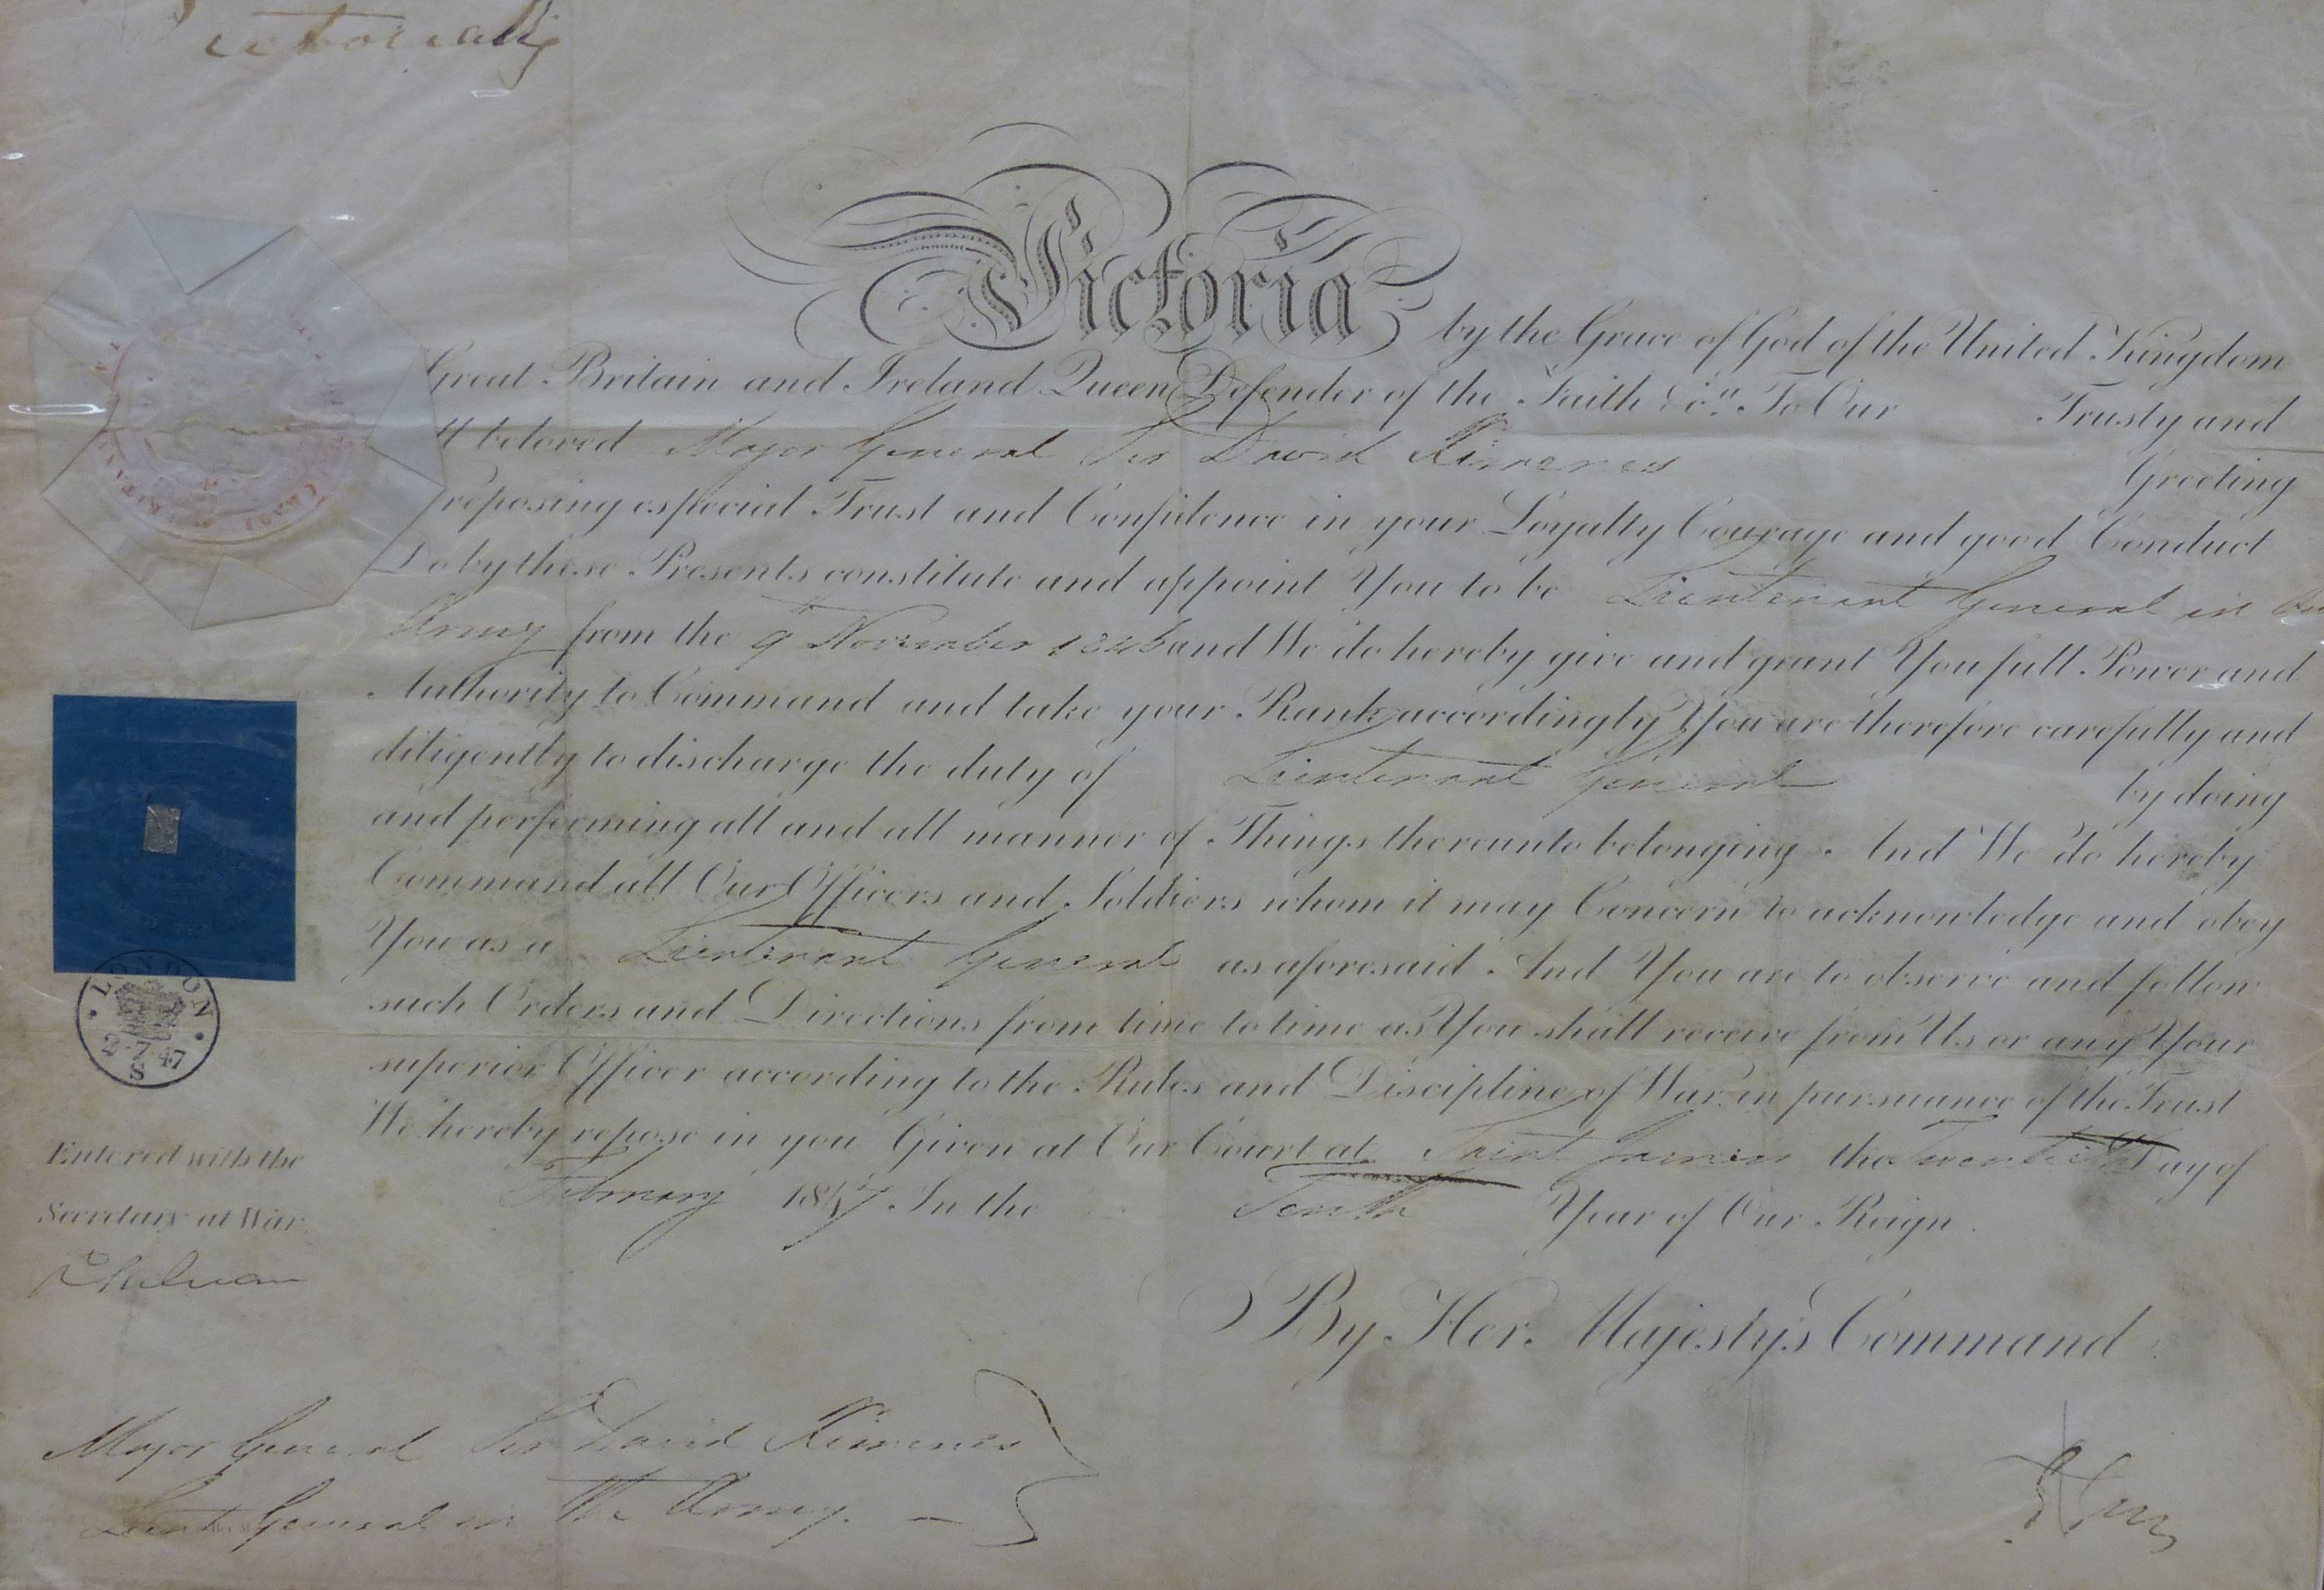 Victoria
by the Grace of God of the United Kingdom
Great Britain and Ireland Queen Defender of the Faith &c.a To Our Trusty and
ll beloved Major General Sir David Ximenes Greeting
reposing especial Trust and Confidence in your Loyalty Courage and good Conduct
Do by these Presents constitute and appoint You to be Lieutenant General in
Army from the 9th November 1846 and We do hereby give and grant You full Power and
Authority to Command and take your Rank accordingly You are therefore carefully and
diligently to discharge the duty of Lieutenant General by doing
and performing all and all manner of Things thereunto belonging. And We do hereby
Command all Our Officers and Soldiers whom it may Concern to acknowledge and obey
You as a Lieutenant General as aforesaid. And You are to observe and follow
such Orders and Directions from time to time as You shall receive from Us or any Your
superior Officer according to the Rules and Discipline of War in pursuance of the Trust
We hereby repose in you Given at Our Court at Saint James's the Twentieth Day of
February 1847 In the Tenth Year of Our Reign.
By Her Majesty's Command
LONDON
7 47
S
Entered with the
Secretary at War
Major General Sir David Ximenes
Lieut General in the Army.